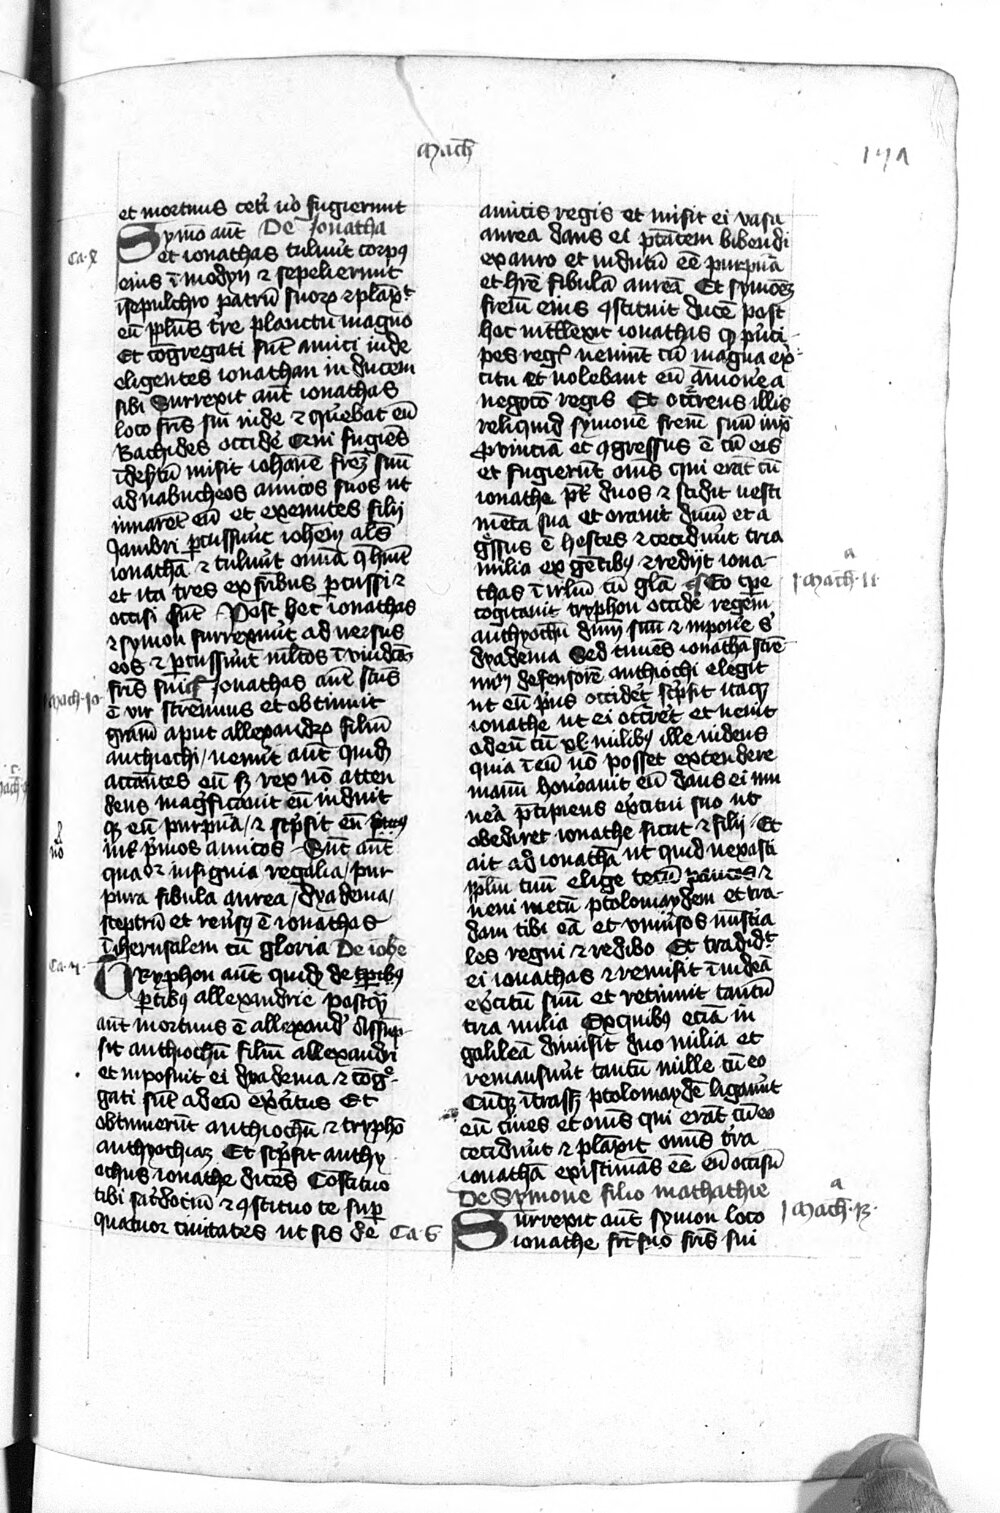 Mach
171
et mortuus ceti uo fugierunt
Symo aut De Jonatha
Ca. V
et ionathas tulunt corpus
eius i modyn et sepelierunt
isepulchro patru suorum et planxt
eu ppls tre planctu magno
Et cogregati sut amici iude
eligentes ionathan in ducem
sibi Surrexit aut ionathas
loco fris sui iude et querebat eu
Bachides occide Qui fugies
i desertu misit iohane frem suu
ad nabucheos amicos suos ut
iuuaret eu et exeuntes filij
Jambri percussunt iohem als
ionatha et tulunt omia q huit
et ita tres ex fribus percussi et
occisi sut Post hec ionathas
et symon surrexunt ad uersus
eos et percussunt mltos i uindca
fris sui Jonathas aut
Mach. 10
e vir strenuus et obtinuit
gram aput allexandrum filiu
anthiochi / uenit aut quid
accantes eu sed rex no atten
dens magficauit eu induit
que eu purpura / et scpsit eu
int pmos amicos Sut aut
no
quatuor insignia regalia / pur
pura fibula aurea / dyadema /
sceptru et reusus e ionathas
i iherusalem cu gloria De
Ca.
Tryphon aut quid de
ptibus allexandrie postq
aut mortuus e allexand
sit anthiochu filiu allexandri
et inposuit ei dyadema et cog-
gati sut ad eu exctus Et
obtinuerut anthiochu et trypho
anthyochiam Et scpsit anthy
ochus ionathe dices Costituo
tibi sacdociu et cstituo te sup
quatuor ciuitates ut sis de
amicis regis et misit ei vasa
aurea dans ei ptatem bibendi
ex auro et indutu ee purpura
et hre fibula aurea Et symoem
frem eius cstituit duce post
hoc intllexit ionathas q pnci-
pes regs uenunt cu magna ex-
citu et uolebant eu amoue a
negoco regis Et occrens illis
reliquid symone frem suu in ipa
prouincia et cgressus e cu eis
et fugierut oms qui erat cu
ionathe pt duos et scidit uesti
meta sua et orauit dnm et a
gssus e hostes et cecidunt tria
milia ex gentibus et redijt iona-
thas i irlm cu gla Eo tpe
1 Mach. 11
cogitauit tryphon occide regem
anthyochu dnm suu et inpone s
dyadema Sed timens ionatha stre
nuu defensore anthiochi elegit
ut eu pus occidet scpsit itaque
ionathe ut ei occret et uenit
ad eu cu xl milibus ille uidens
quia i eu no posset extendere
manu honorauit eu dans ei mu
nea pcipiens exctui suo ut
obediret ionathe sicut et filij / Et
ait ad ionatha ut quid uexasti
pplm tuu elige tecu paucos et
ueni mecu ptolomaydem et tra-
dam tibi ea et vniusos
les regni et redibo Et tradidt
ei ionathas et remisit i iudea
exctum suu et retinuit tantu
tria milia Ex quibus ecia in
galilea dimisit duo milia et
remansunt tantu mille cu eo
Cuque itrasset ptolomayde ligaunt
eu ciues et oms qui erat cu eo
cecidunt et planxit omis tra
ionatha existimas ee eu occisu
De Symone filio mathathie
Ca. 6
Surrexit aut symon loco
1 Mach. 13.
ionathe fri suo fris sui